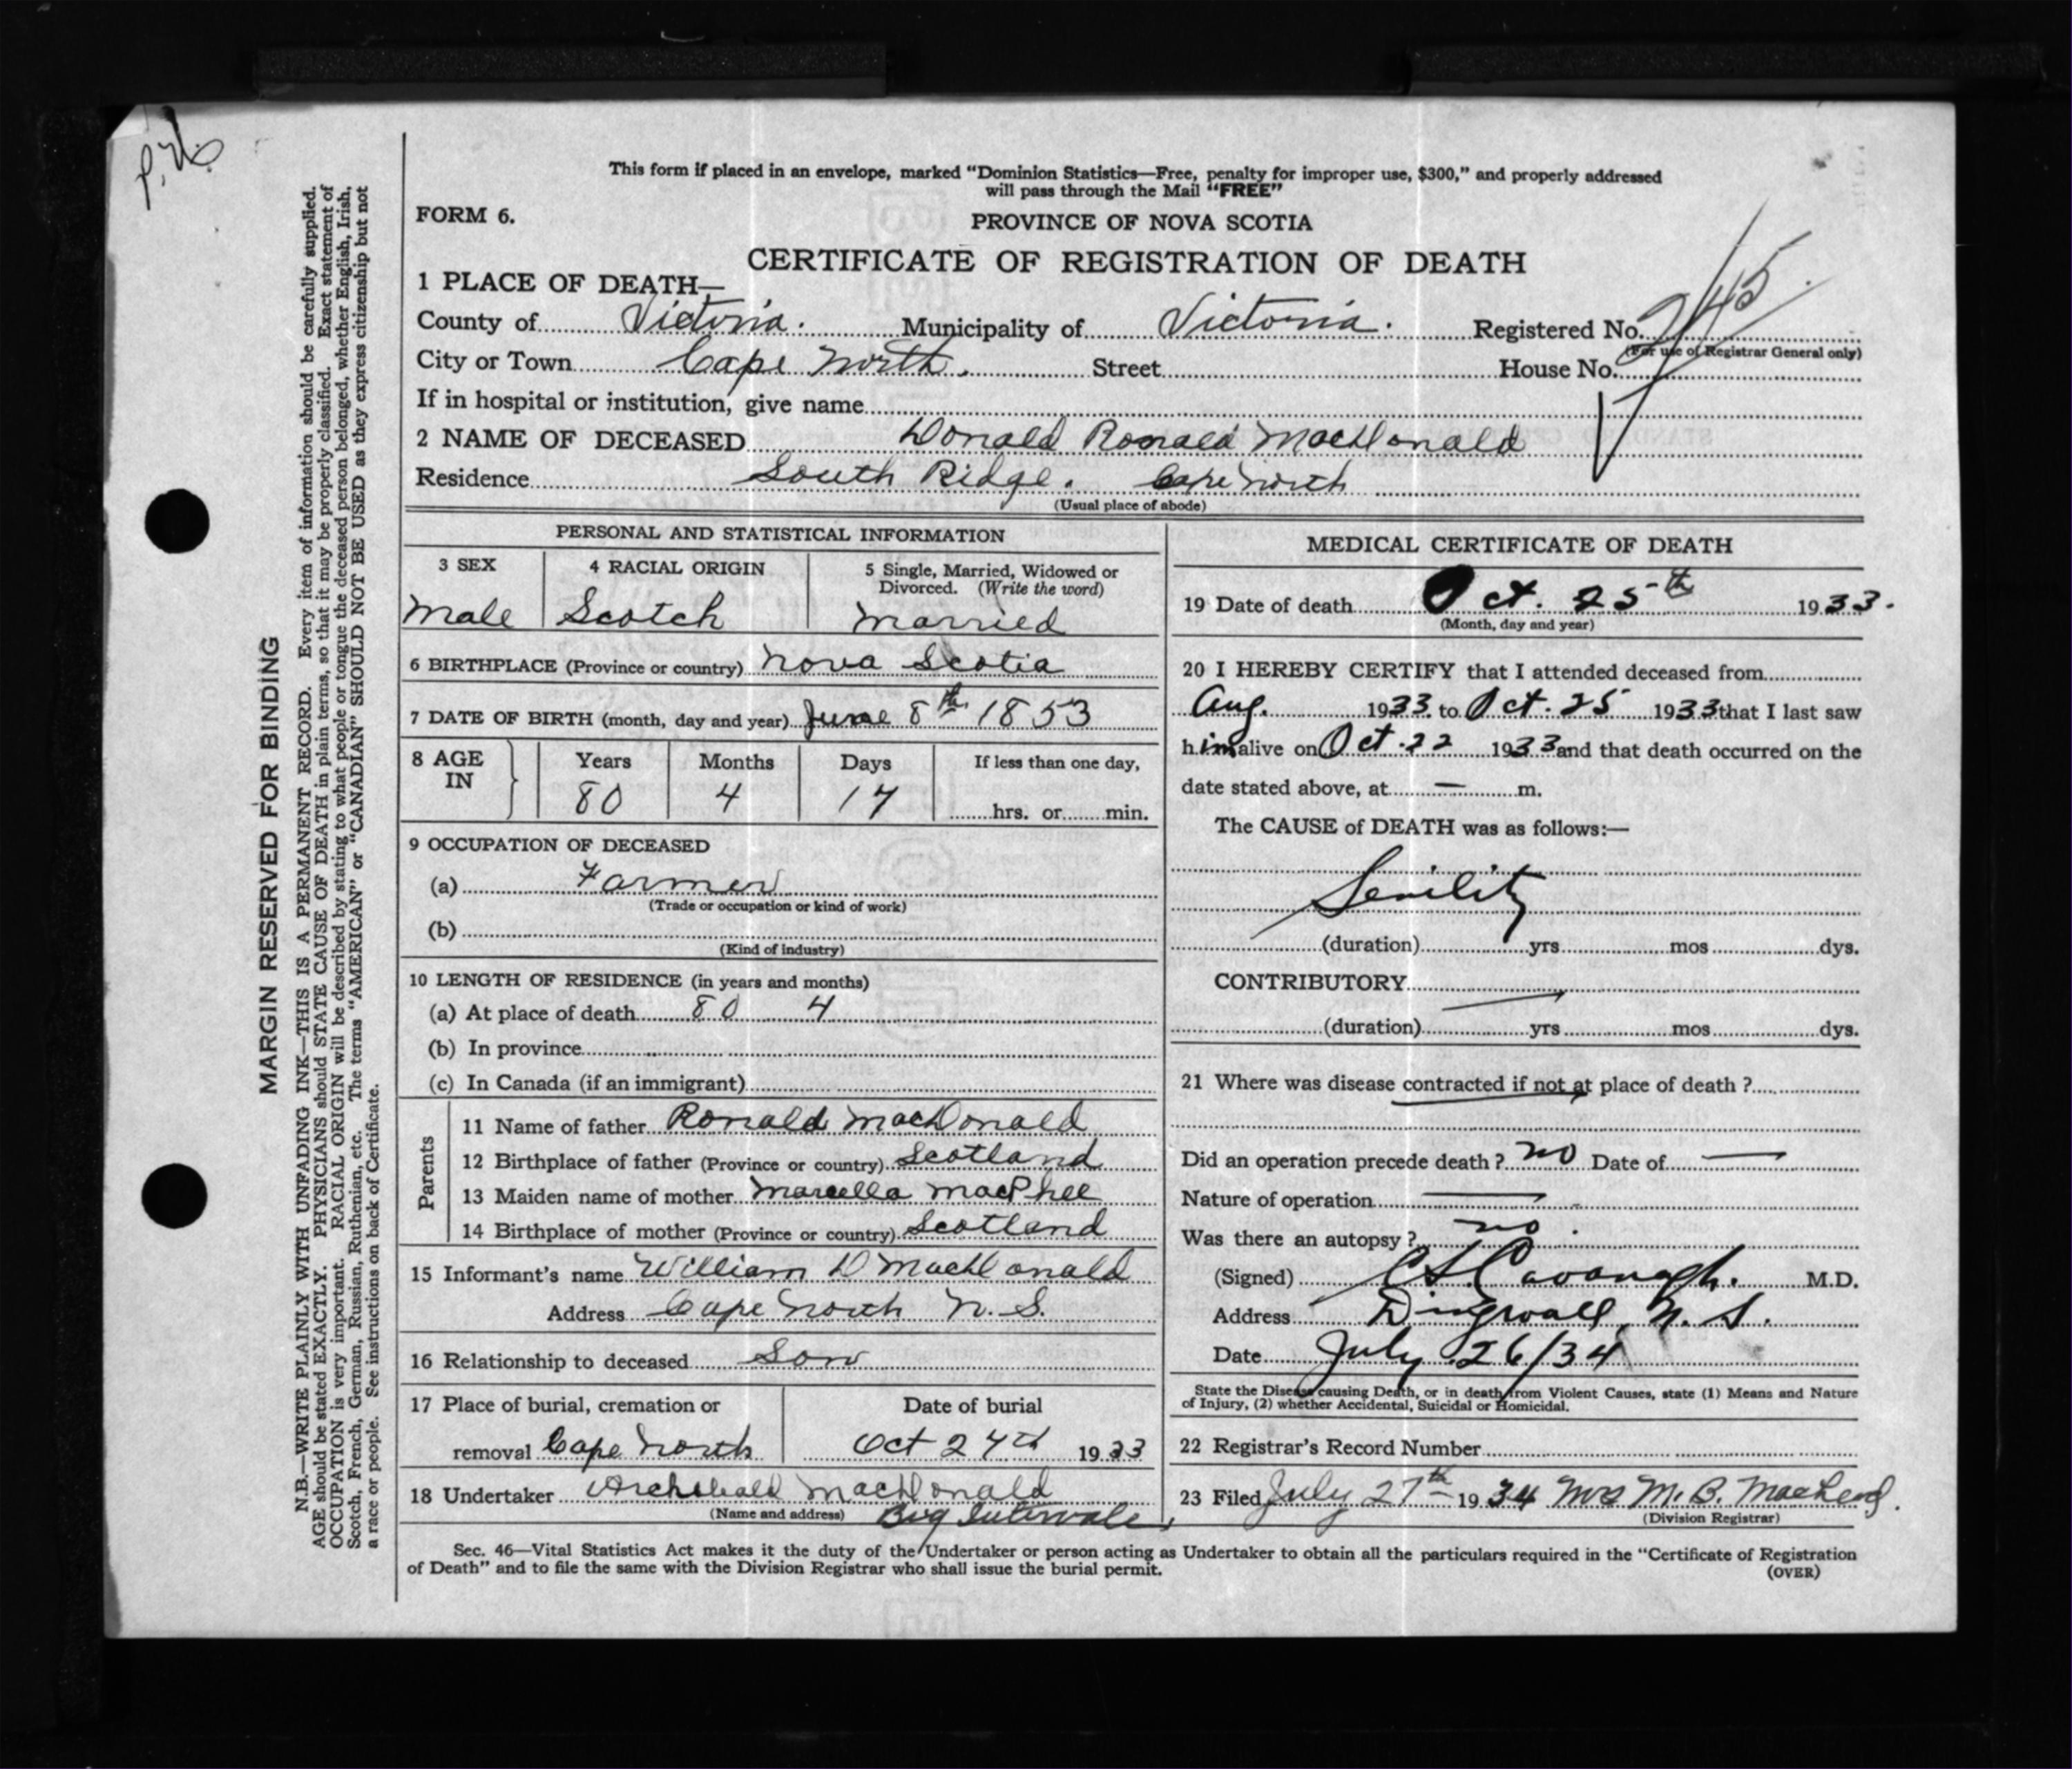 P. 26
This form if placed in an envelope, marked "Dominion Statistics—Free, penalty for improper use, $300," and properly addressed
will pass through the Mail "FREE"
FORM 6.
PROVINCE OF NOVA SCOTIA
CERTIFICATE OF REGISTRATION OF DEATH
1 PLACE OF DEATH—
County of Victoria. Municipality of Victoria. Registered No. 245
(For use of Registrar General only)
City or Town Cape North. Street House No.
If in hospital or institution, give name
2 NAME OF DECEASED Donald Ronald MacDonald
Residence South Ridge. Cape North
(Usual place of abode)
PERSONAL AND STATISTICAL INFORMATION
3 SEX 4 RACIAL ORIGIN 5 Single, Married, Widowed or
Divorced. (Write the word)
Male Scotch Married
6 BIRTHPLACE (Province or country) Nova Scotia
7 DATE OF BIRTH (month, day and year) June 8th 1853
8 AGE IN Years Months Days If less than one day,
80 4 17 hrs. or min.
9 OCCUPATION OF DECEASED
(a) Farmer
(Trade or occupation or kind of work)
(b)
(Kind of industry)
10 LENGTH OF RESIDENCE (in years and months)
(a) At place of death 80 4
(b) In province
(c) In Canada (if an immigrant)
Parents
11 Name of father Ronald MacDonald
12 Birthplace of father (Province or country) Scotland
13 Maiden name of mother Marcella MacPhee
14 Birthplace of mother (Province or country) Scotland
15 Informant's name William D MacDonald
Address Cape North N. S.
16 Relationship to deceased Son
17 Place of burial, cremation or Date of burial
removal Cape North Oct 27th 1933
18 Undertaker Archibald MacDonald
(Name and address) Big Intervale,
MEDICAL CERTIFICATE OF DEATH
19 Date of death Oct. 25th 1933.
(Month, day and year)
20 I HEREBY CERTIFY that I attended deceased from
Aug. 1933 to Oct. 25 1933 that I last saw
him alive on Oct. 22 1933 and that death occurred on the
date stated above, at — m.
The CAUSE of DEATH was as follows:—
Senility
(duration) yrs mos dys.
CONTRIBUTORY —
(duration) yrs mos dys.
21 Where was disease contracted if not at place of death ?
Did an operation precede death ? no Date of —
Nature of operation —
Was there an autopsy ? no
(Signed) C L Cavanagh. M.D.
Address Dingwall, N. S.
Date July 26/34
State the Disease causing Death, or in death from Violent Causes, state (1) Means and Nature
of Injury, (2) whether Accidental, Suicidal or Homicidal.
22 Registrar's Record Number
23 Filed July 27th 1934 Mrs M. B. MacLeod.
(Division Registrar)
Sec. 46—Vital Statistics Act makes it the duty of the Undertaker or person acting as Undertaker to obtain all the particulars required in the "Certificate of Registration
of Death" and to file the same with the Division Registrar who shall issue the burial permit.
(OVER)
MARGIN RESERVED FOR BINDING
N.B.—WRITE PLAINLY WITH UNFADING INK—THIS IS A PERMANENT RECORD. Every item of information should be carefully supplied.
AGE should be stated EXACTLY. PHYSICIANS should STATE CAUSE OF DEATH in plain terms, so that it may be properly classified. Exact statement of
OCCUPATION is very important. RACIAL ORIGIN will be described by stating to what people or tongue the deceased person belonged, whether English, Irish,
Scotch, French, German, Russian, Ruthenian, etc. The terms "AMERICAN" or "CANADIAN" SHOULD NOT BE USED as they express citizenship but not
a race or people. See instructions on back of Certificate.